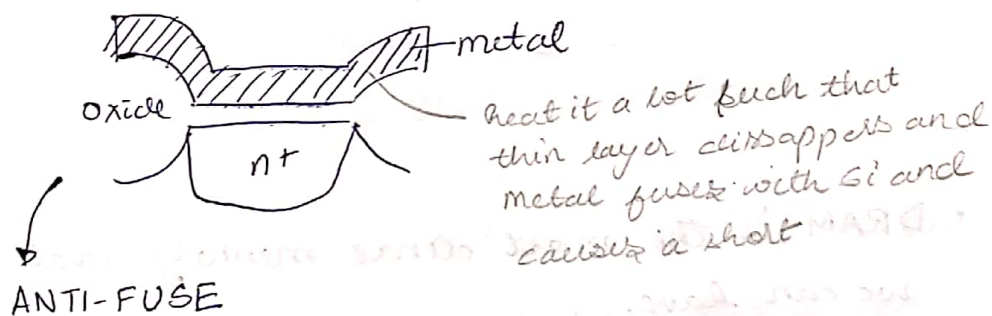 metal
oxide
heat it a lot such that
thin layer dissappers and
n+
metal fuses with Si and
causes a short
ANTI-FUSE
• DRAM
we can have.